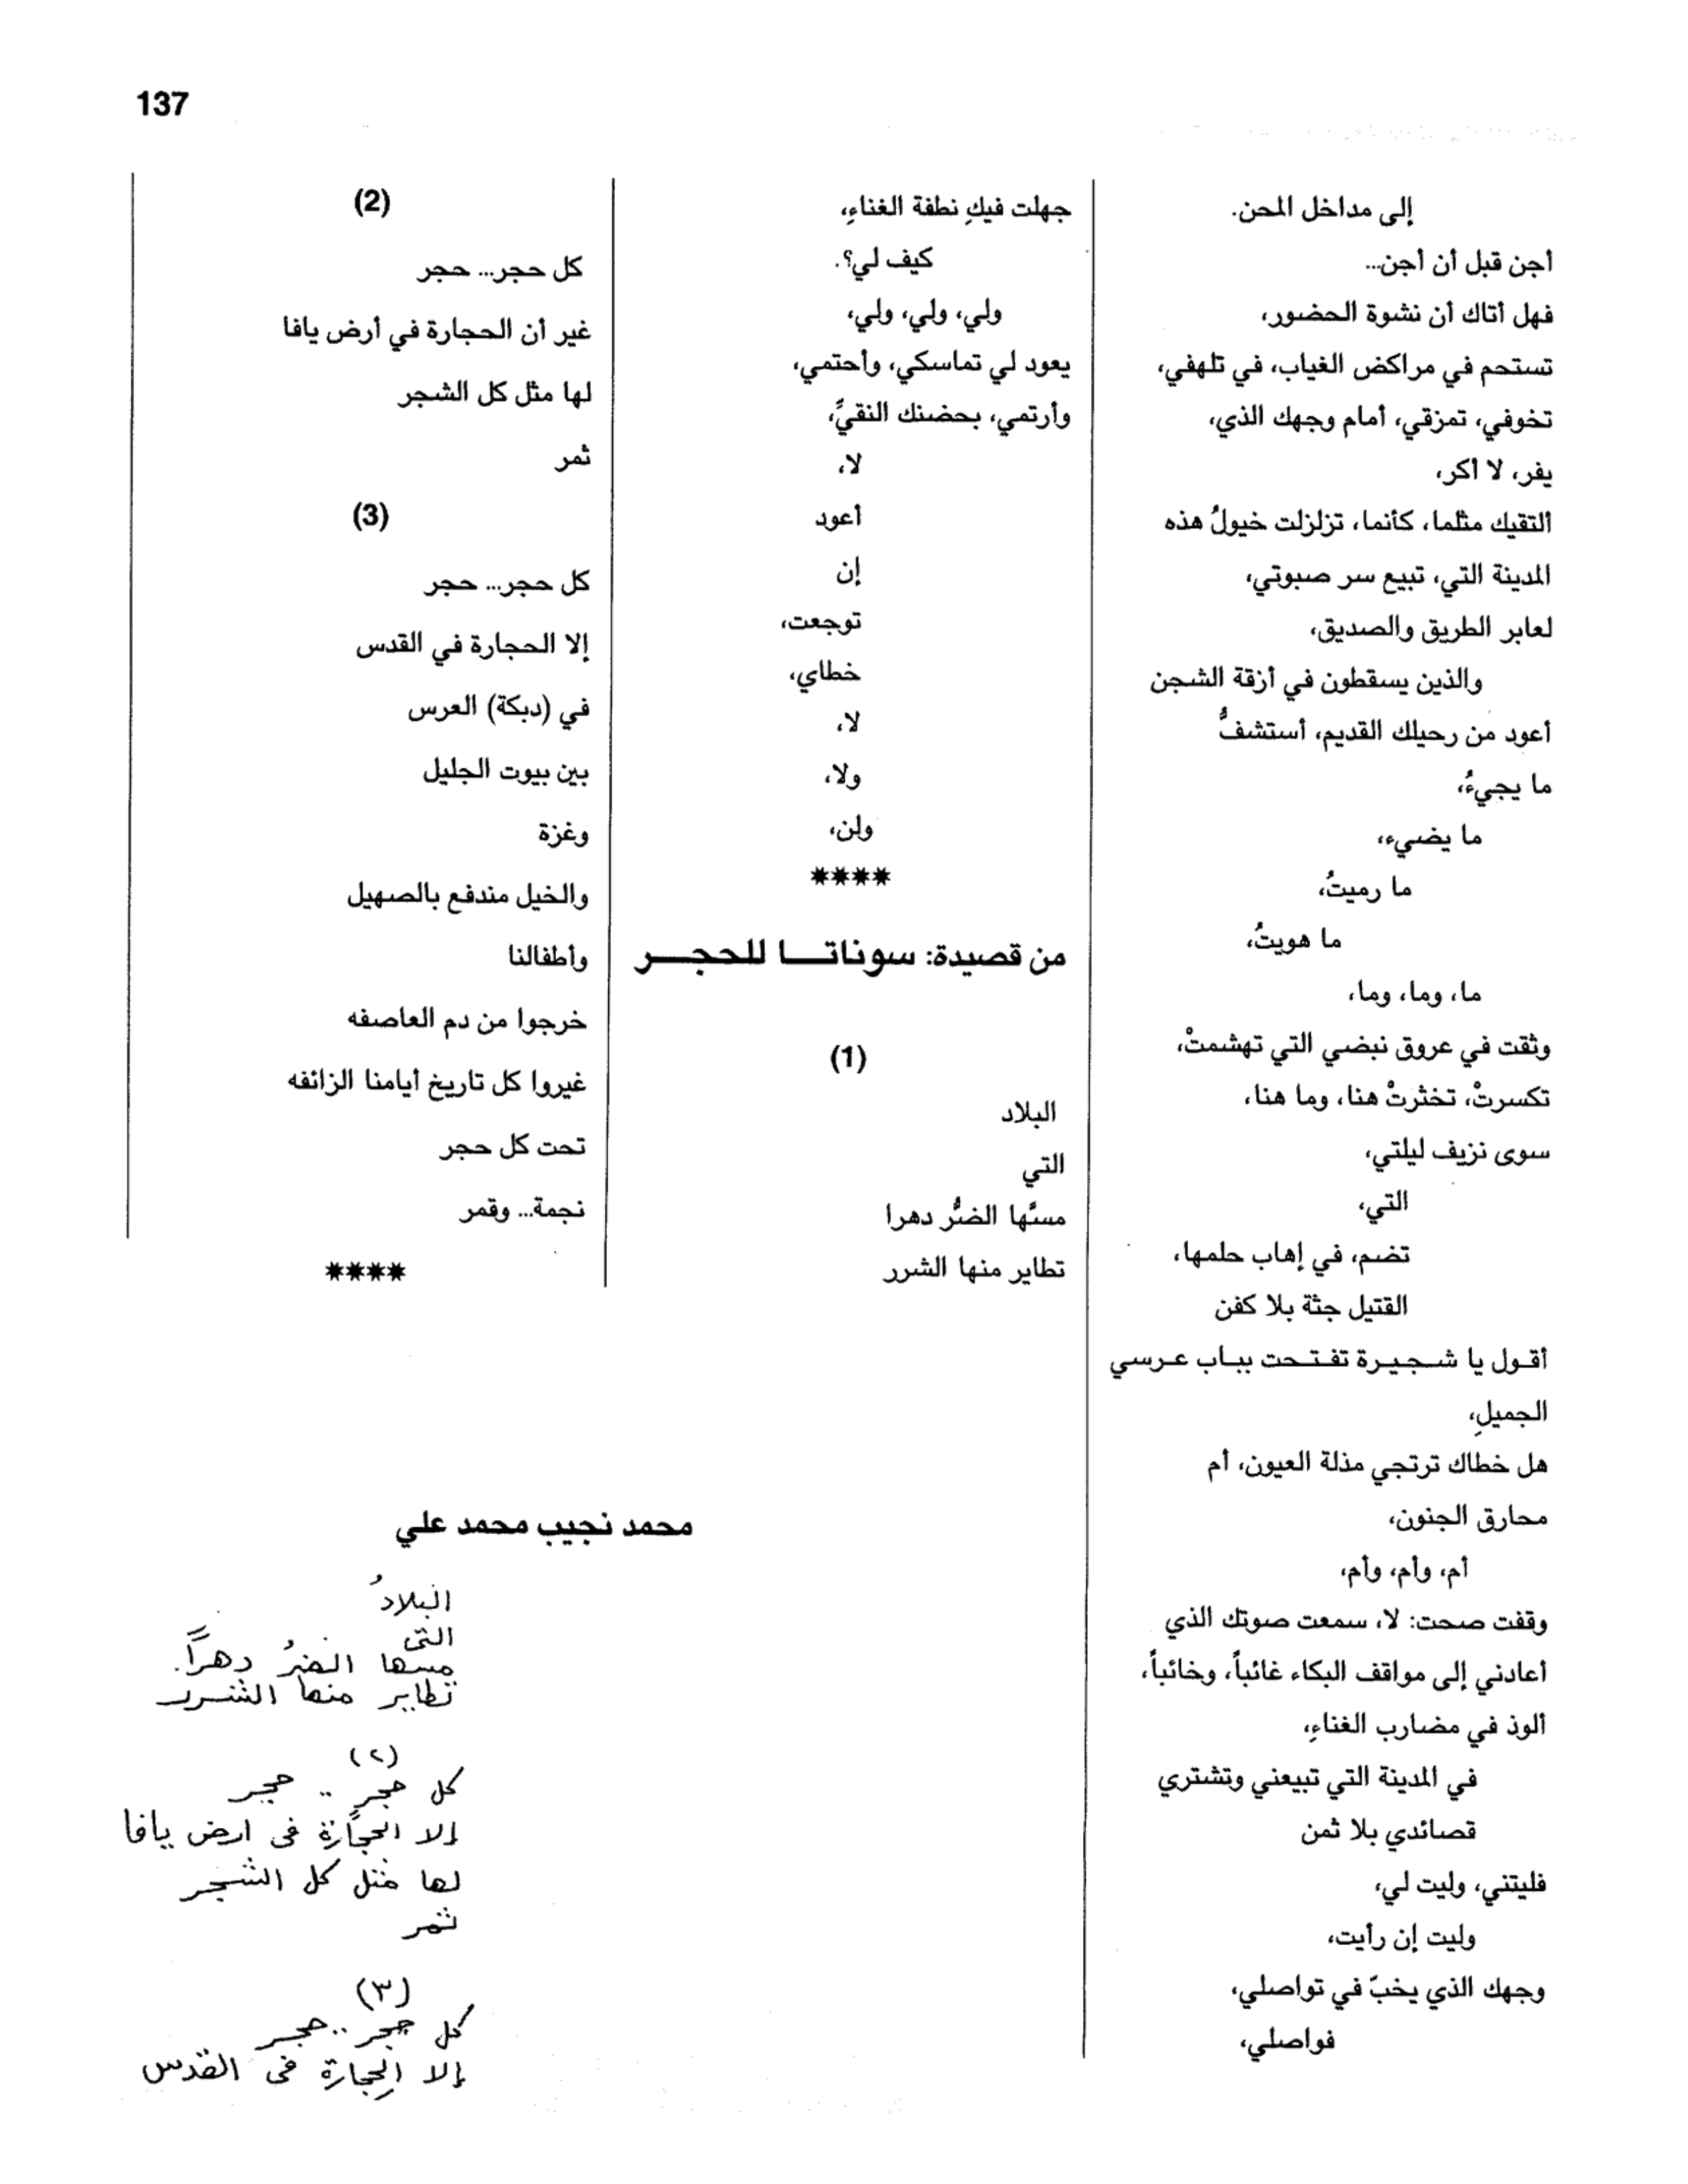 137
إلى مداخل المحن.
أجن قبل أن أجن...
فهل أتاك أن نشوة الحضور،
تستحم في مراكض الغياب، في تلهفي،
تخوفي، تمزقي، أمام وجهك الذي،
يفر، لا أكر،
ألتقيك مثلما، كأنما، تزلزلت خيولُ هذه
المدينة التي، تبيع سر صبوتي،
لعابر الطريق والصديق،
والذين يسقطون في أزقة الشجن
أعود من رحيلك القديم، أستشفُّ
ما يجيءُ،
ما يضيء،
ما رميتُ،
ما هويتُ،
ما، وما، وما،
وثقت في عروق نبضي التي تهشمتْ،
تكسرتْ، تخثرتْ هنا، وما هنا،
سوى نزيف ليلتي،
التي،
تضم، في إهاب حلمها،
القتيل جثة بلا كفن
أقول يا شجيرة تفتحت بباب عرسي
الجميلِ،
هل خطاك ترتجي مذلة العيون، أم
محارق الجنون،
أم، وأم، وأم،
وقفت صحت: لا، سمعت صوتك الذي
أعادني إلى مواقف البكاء غائباً، وخائباً،
ألوذ في مضارب الغناءِ،
في المدينة التي تبيعني وتشتري
قصائدي بلا ثمن
فليتني، وليت لي،
وليت إن رأيت،
وجهك الذي يخبّ في تواصلي،
فواصلي،
جهلت فيكِ نطفة الغناءِ،
كيف لي؟.
ولي، ولي، ولي،
يعود لي تماسكي، وأحتمي،
وأرتمي، بحضنك النقيِّ،
لا،
أعود
إن
توجعت،
خطاي،
لا،
ولا،
ولن،
****
من قصيدة: سوناتا للحجر
(1)
البلاد
التي
مسَّها الضرُّ دهرا
تطاير منها الشرر
(2)
كل حجر... حجر
غير أن الحجارة في أرض يافا
لها مثل كل الشجر
ثمر
(3)
كل حجر... حجر
إلا الحجارة في القدس
في (دبكة) العرس
بين بيوت الجليل
وغزة
والخيل مندفع بالصهيل
وأطفالنا
خرجوا من دم العاصفه
غيروا كل تاريخ أيامنا الزائفه
تحت كل حجر
نجمة... وقمر
****
محمد نجيب محمد علي
البلادُ
التى
مسها الضرُ دهراً.
تطاير منها الشرر
(٢)
كل حجر .. حجر
إلا الحجارة فى ارض يافا
لها مثل كل الشجر
ثمر
(٣)
كل حجر .. حجر
إلا الحجارة فى القدس